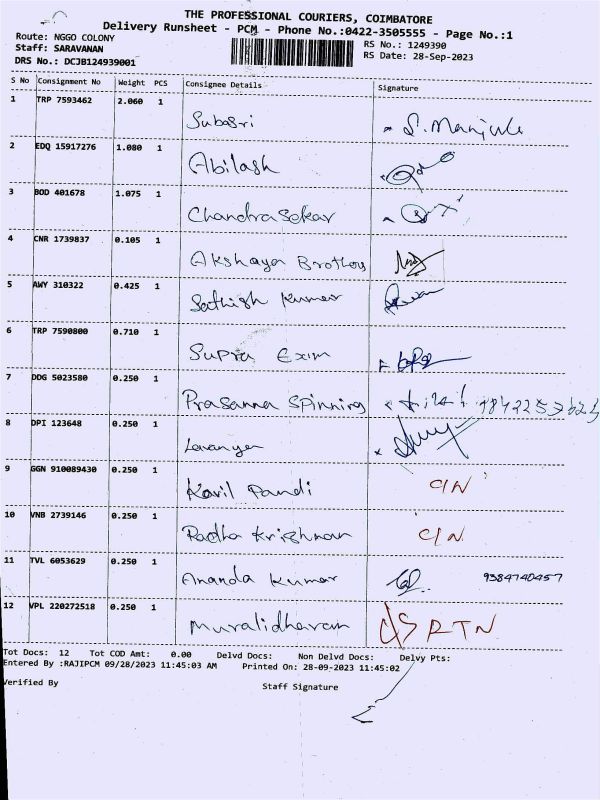 THE PROFESSIONAL COURIERS, COIMBATORE
Delivery Runsheet - PCM - Phone No.:0422-3505555 - Page No.:1
Route: NGGO COLONY
RS No.: 1249390
Staff: SARAVANAN
RS Date: 28-Sep-2023
DRS No.: DCJB124939001
S No Consignment No Weight PCS Consignee Details Signature
1 TRP 7593462 2.060 1 Subasri S. Manjula
2 EDQ 15917276 1.080 1 Abilash
3 BOD 401678 1.075 1 Chandrasekar
4 CNR 1739837 0.105 1 Akshaya Brothers
5 AWY 310322 0.425 1 Sathish Kumar
6 TRP 7590800 0.710 1 Supra Exim
7 DDG 5023580 0.250 1 Prasanna Spinning
8 DPI 123648 0.250 1 Lavanya
9 GGN 910089430 0.250 1 Kavil Pandi C/N
10 VNB 2739146 0.250 1 Radha Krishnan C/N
11 TVL 6053629 0.250 1 Ananda Kumar 9384740457
12 VPL 220272518 0.250 1 Muralidharan RTN
Tot Docs: 12 Tot COD Amt: 0.00 Delvd Docs: Non Delvd Docs: Delvy Pts:
Entered By :RAJIPCM 09/28/2023 11:45:03 AM Printed On: 28-09-2023 11:45:02
Verified By Staff Signature